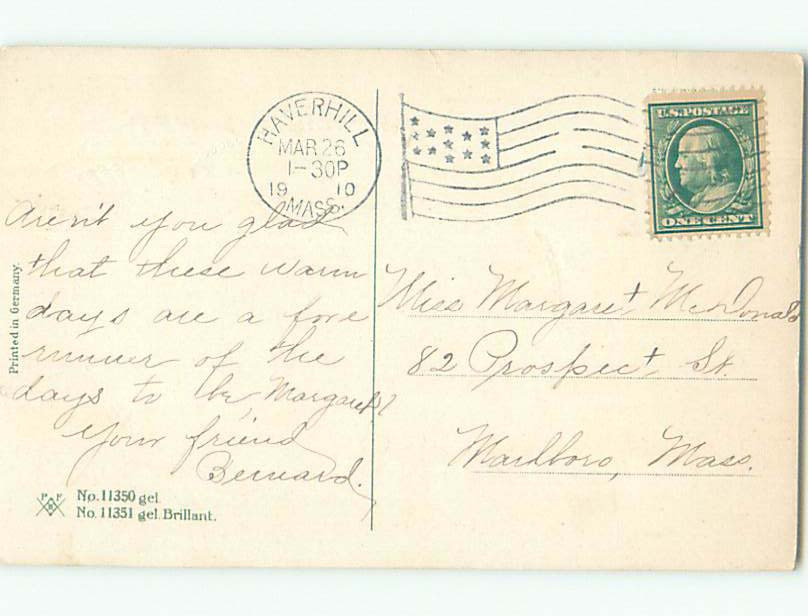 HAVERHILL
MAR 26
1-30P
19 10
MASS.
U.S. POSTAGE
ONE CENT
Aren't you glad
that these warm
days are a fore
runner of the
days to be, Margaret?
Your friend
Bernard.
Miss Margaret McDonald
82 Prospect St.
Marlboro, Mass.
Printed in Germany.
P F
No. 11350 gel.
No. 11351 gel. Brillant.